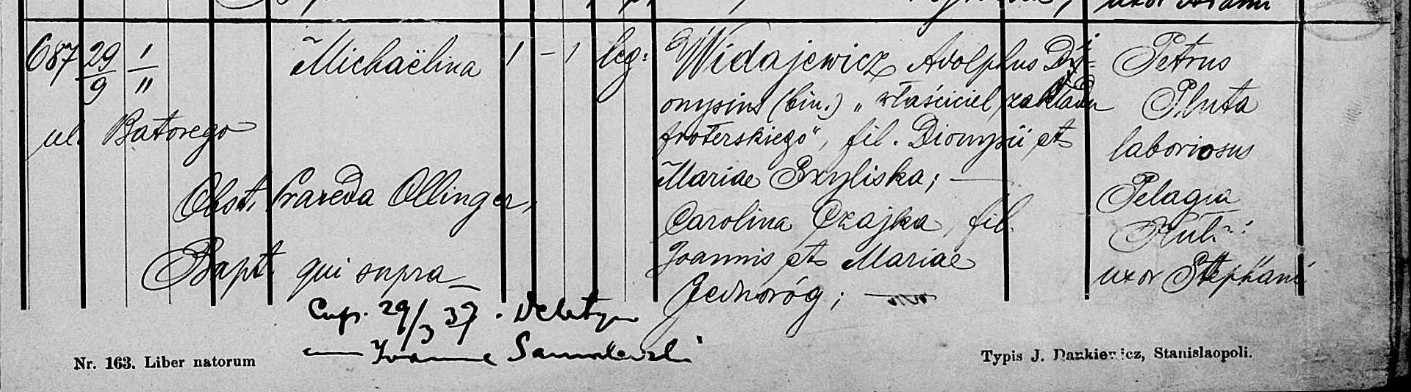 uxor Adami
687 29/9 1/11 Michaëlina 1 - 1 leg: Widajewicz Adolphus Di= Petrus
onysius (bin.) „właściciel zakładu Pluta
ul. Batorego froterskiego", fil. Dionysii et laboriosus
Obst. Praxeda Ollinger, Mariae Bzyliska; — Pelagia
Carolina Czajka, fil.
Bapt. qui supra Joannis et Mariae uxor Stephani
Jednoróg;
Cup. 29/3 37. Delatyn
cum Joanne
Nr. 163. Liber natorum Typis J. Dankiewicz, Stanislaopoli.